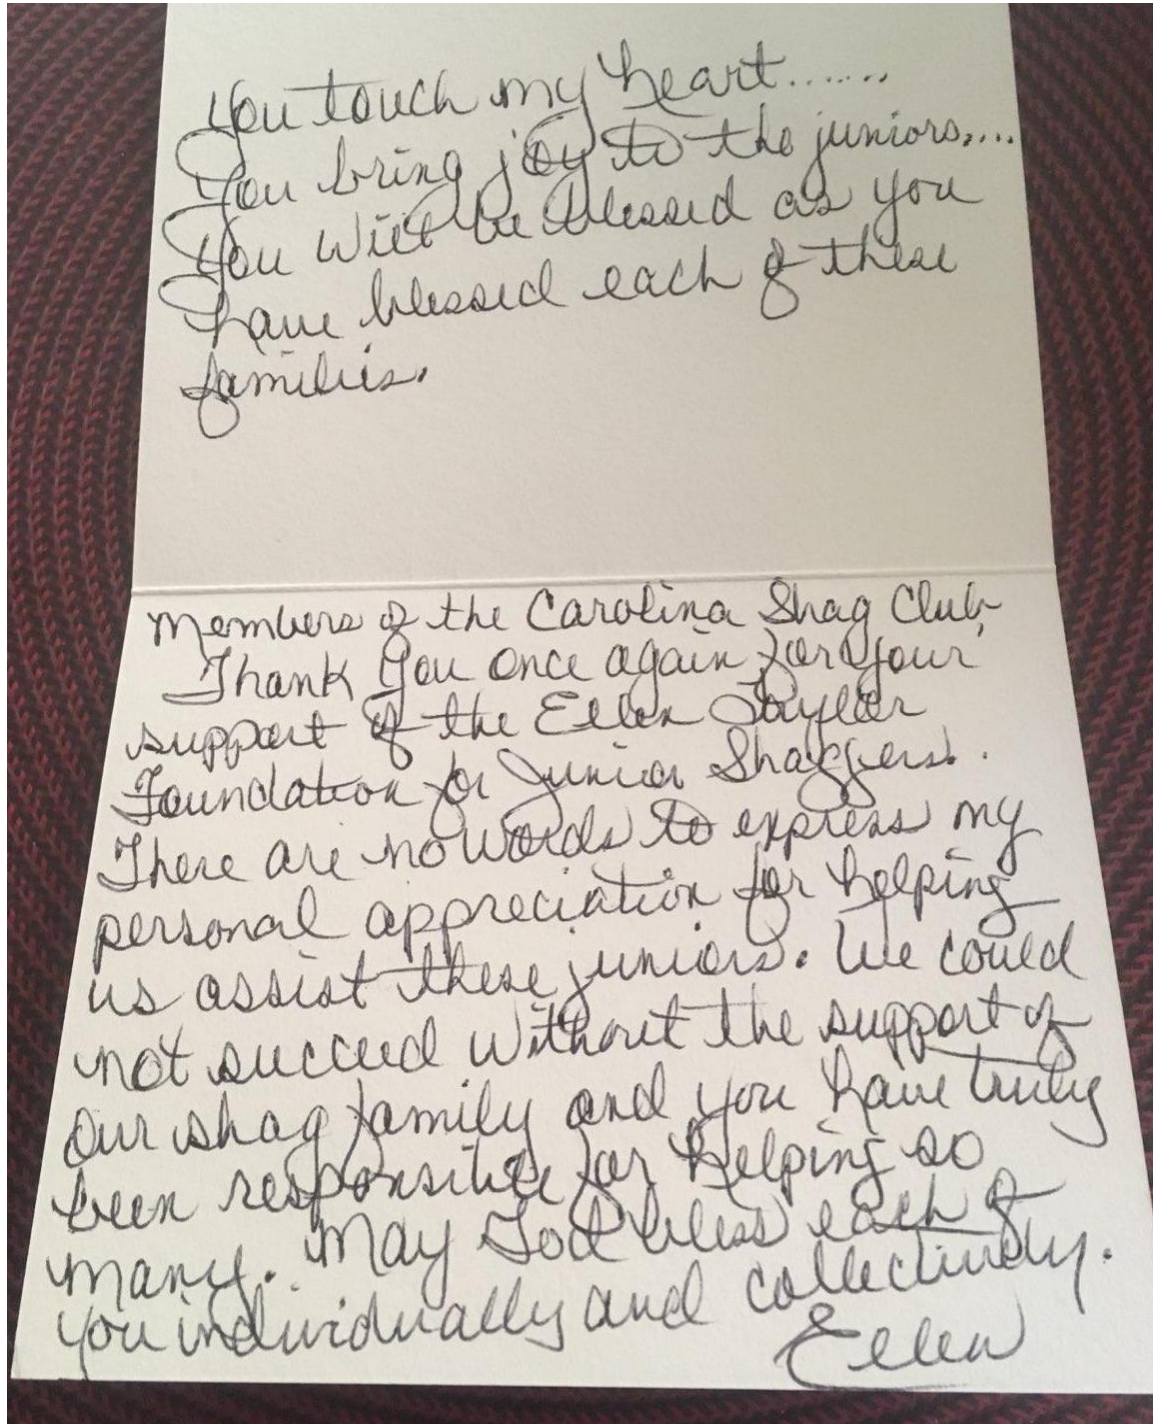 You touch my heart.......
You bring joy to the juniors....
You will be blessed as you
have blessed each of these
families.
Members of the Carolina Shag Club,
Thank you once again for your
support of the Ellen Taylor
Foundation for Junior Shaggers.
There are no words to express my
personal appreciation for helping
us assist these juniors. We could
not succeed without the support of
our shag family and you have truly
been responsible for helping so
many. May God bless each of
you individually and collectively.
Ellen